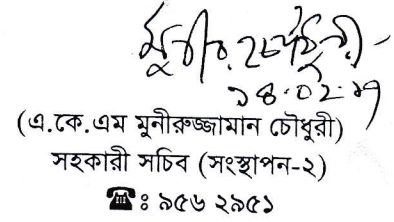 মুনীর চৌধুরী
১৪.০২.১৭
(এ.কে.এম মুনীরুজ্জামান চৌধুরী)
সহকারী সচিব (সংস্থাপন-২)
☎ঃ ৯৫৬ ২৯৫১